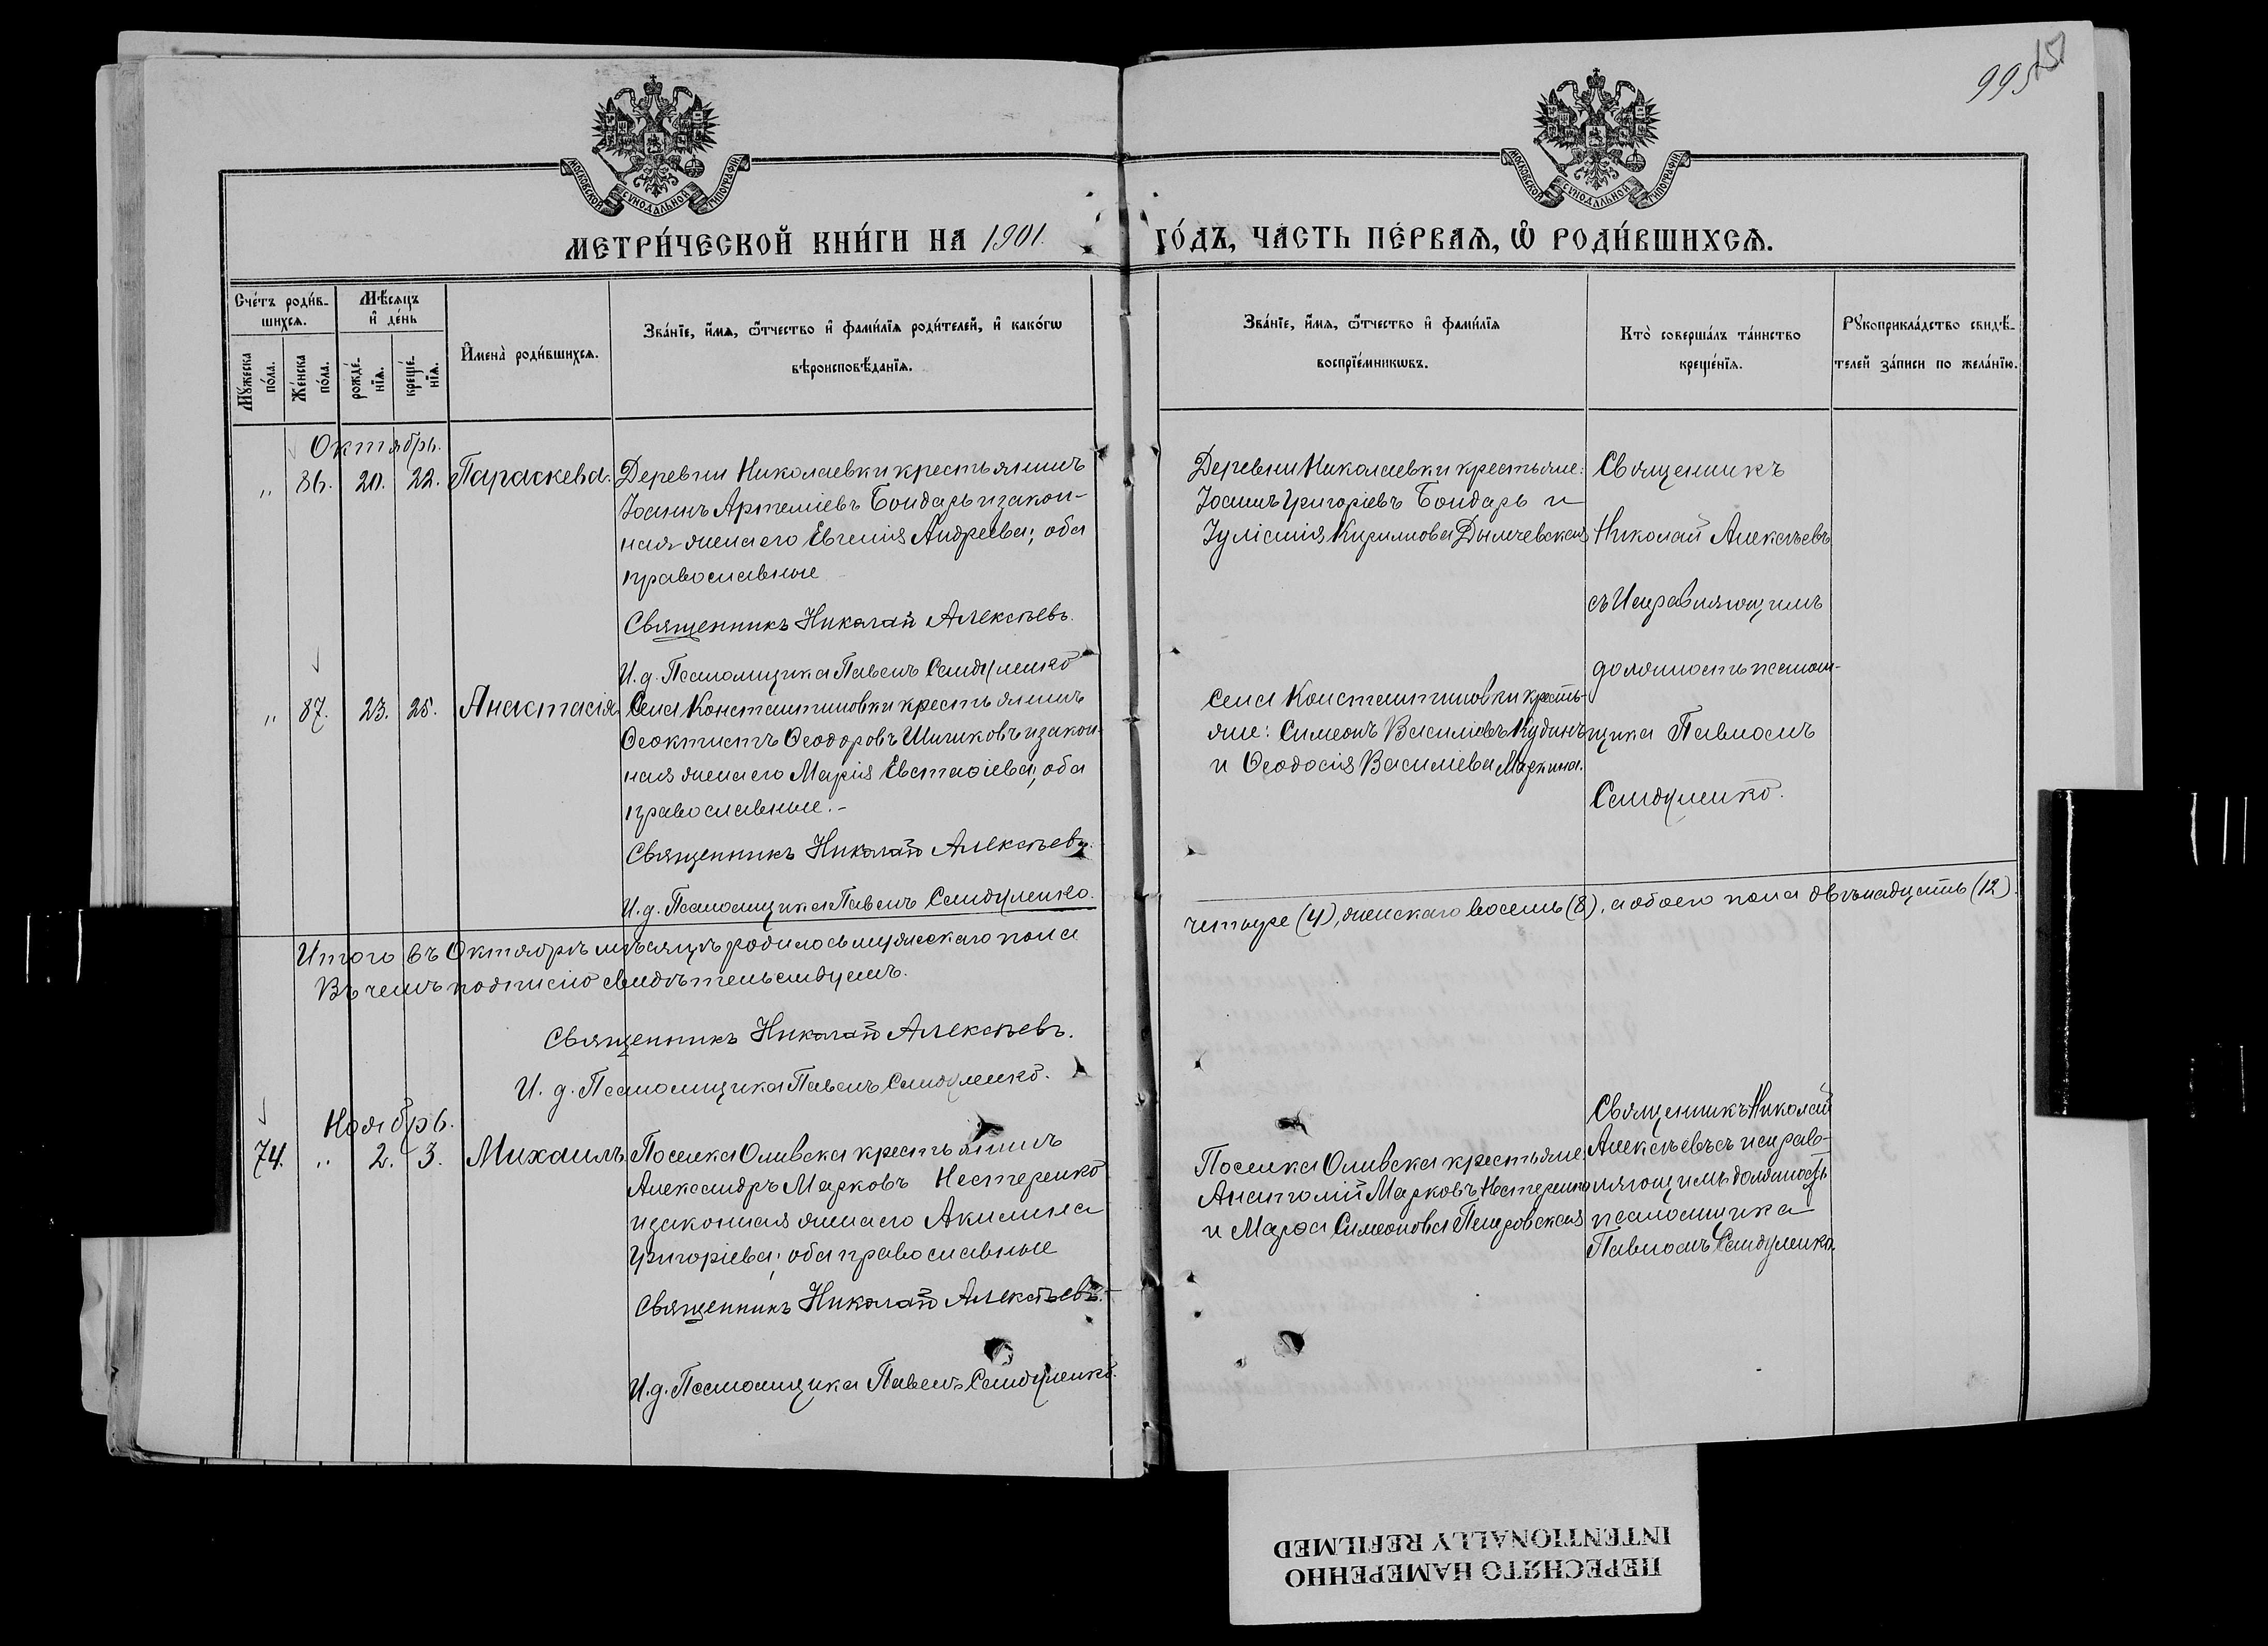 995
151
МОСКОВСКОЙ СѴНОДАЛЬНОЙ ТИПОГРАФІИ
МОСКОВСКОЙ СѴНОДАЛЬНОЙ ТИПОГРАФІИ
МЕТРИ́ЧЕСКОЙ КНИ́ГИ НА 1901.
ГО́ДЪ, ЧА́СТЬ ПЕ́РВАѦ, Ѡ҆ РОДИ́ВШИХСѦ.
Сче́тъ роди́в-
шихсѧ.
Мѣ́сѧцъ
и҆ де́нь
Мꙋ́жеска
по́ла.
Же́нска
по́ла.
рожде́-
нїѧ.
креще́-
нїѧ.
И҆мена̀ роди́вшихсѧ.
Зва́нїе, и҆́мѧ, ѻ҆́тчество и҆ фами́лїѧ роди́телей, и҆ како́гѡ
вѣроисповѣ́данїѧ.
Зва́нїе, и҆́мѧ, ѻ҆́тчество и҆ фами́лїѧ
воспрїе́мникѡвъ.
Кто̀ соверша́лъ та́инство
креще́нїѧ.
Рꙋкоприкла́дство свидѣ́-
телей за́писи по жела́нїю.
Октябрь.
„ 86. 20. 22. Параскева. Деревни Николаевки крестьянинъ
Іоаннъ Артеміевъ Бондарь и закон-
ная жена его Евгенія Андреева; оба
православные
Священникъ Николай Алексѣевъ.
И. д. Псаломщика Павелъ Сандуленко
Деревни Николаевки крестьяне:
Іоаннъ Григоріевъ Бондарь и
Іуліанія Кириллова Дымчевская
Священникъ
Николай Алексѣевъ
съ Исправляющимъ
должность псалом-
щика Павломъ
Сандуленко.
„ 87. 23. 25. Анастасія Села Константиновки крестьянинъ
Ѳеоктистъ Ѳеодоровъ Шишковъ и закон-
ная жена его Марія Евстаѳіева; оба
православные.-
Священникъ Николай Алексѣевъ.
И. д. Псаломщика Павелъ Сандуленко.
Села Константиновки кресть-
яне: Симеонъ Василіевъ Кудинъ
и Ѳеодосія Василіева Маркина.
Итого въ Октябрѣ мѣсяцѣ родилось мужескаго пола
четыре (4), женскаго восемь (8), а обоего пола двѣнадцать (12).
Въ чемъ подписью свидѣтельствуемъ.
Священникъ Николай Алексѣевъ.
И. д. Псаломщика Павелъ Сандуленко.
Ноябрь.
74. „ 2. 3. Михаилъ Поселка Оливска крестьянинъ
Александръ Марковъ Нестеренко
и законная жена его Акилина
Григоріева; оба православные
Священникъ Николай Алексѣевъ.-
И. д. Псаломщика Павелъ Сандуленко.
Поселка Оливска крестьяне:
Анатолій Марковъ Нестеренко
и Марѳа Симеонова Петровская
Священникъ Николай
Алексѣевъ съ исправ-
ляющимъ должность
псаломщика
Павломъ Сандуленко.
ПЕРЕСНЯТО НАМЕРЕННО
INTENTIONALLY REFILMED